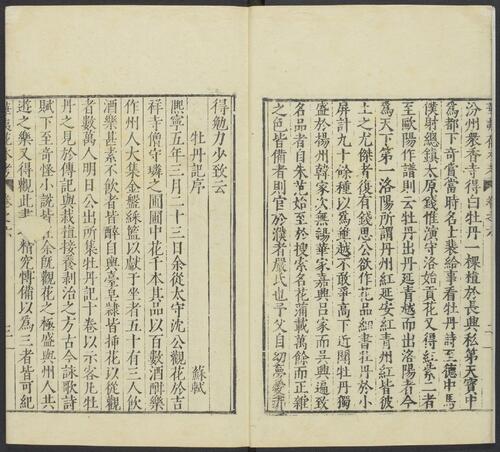 汾州衆香寺得白牡丹一棵植於長興私第天寶中
爲都下奇賞當時名士裴給事看牡丹詩至德中馬
僕射總鎮太原錢惟演守洛始貢花又得紅紫二者
至歐陽作譜則云牡丹出丹延青越而出洛陽者今
爲天下第一洛陽所謂丹州紅延安紅青州紅皆彼
土之尤傑者復有錢思公欲作花品細書牡丹於小
屏計九十餘種以爲越不敢爭高下近聞牡丹獨
盛於揚州韓家陽華家嘉興呂家而吳興遍致
名品者自朱始至於搜索名花蒲載萬餘而正雜
之色皆備者則官於濮者嚴氏也予父自幼
得勉力少致云
牡丹記序 蘇軾
熙寧五年三月二十三日余從太守沈公觀花於吉
祥寺僧守璘之圃圃中花千本其品以百數酒酣樂
作州人大集金盤綵籃以獻于坐者五十有三人飲
酒樂甚素不飲者皆醉自輿臺皁隸皆插花以從觀
者數萬人明日公出所集牡丹記十卷以示客凡牡
丹之見於傳記與栽植接養剝治之方古今詠歌詩
賦下至奇怪小說皆余既觀花之極盛與州人共
遊之樂又得觀此書精究博備以爲三者皆可紀